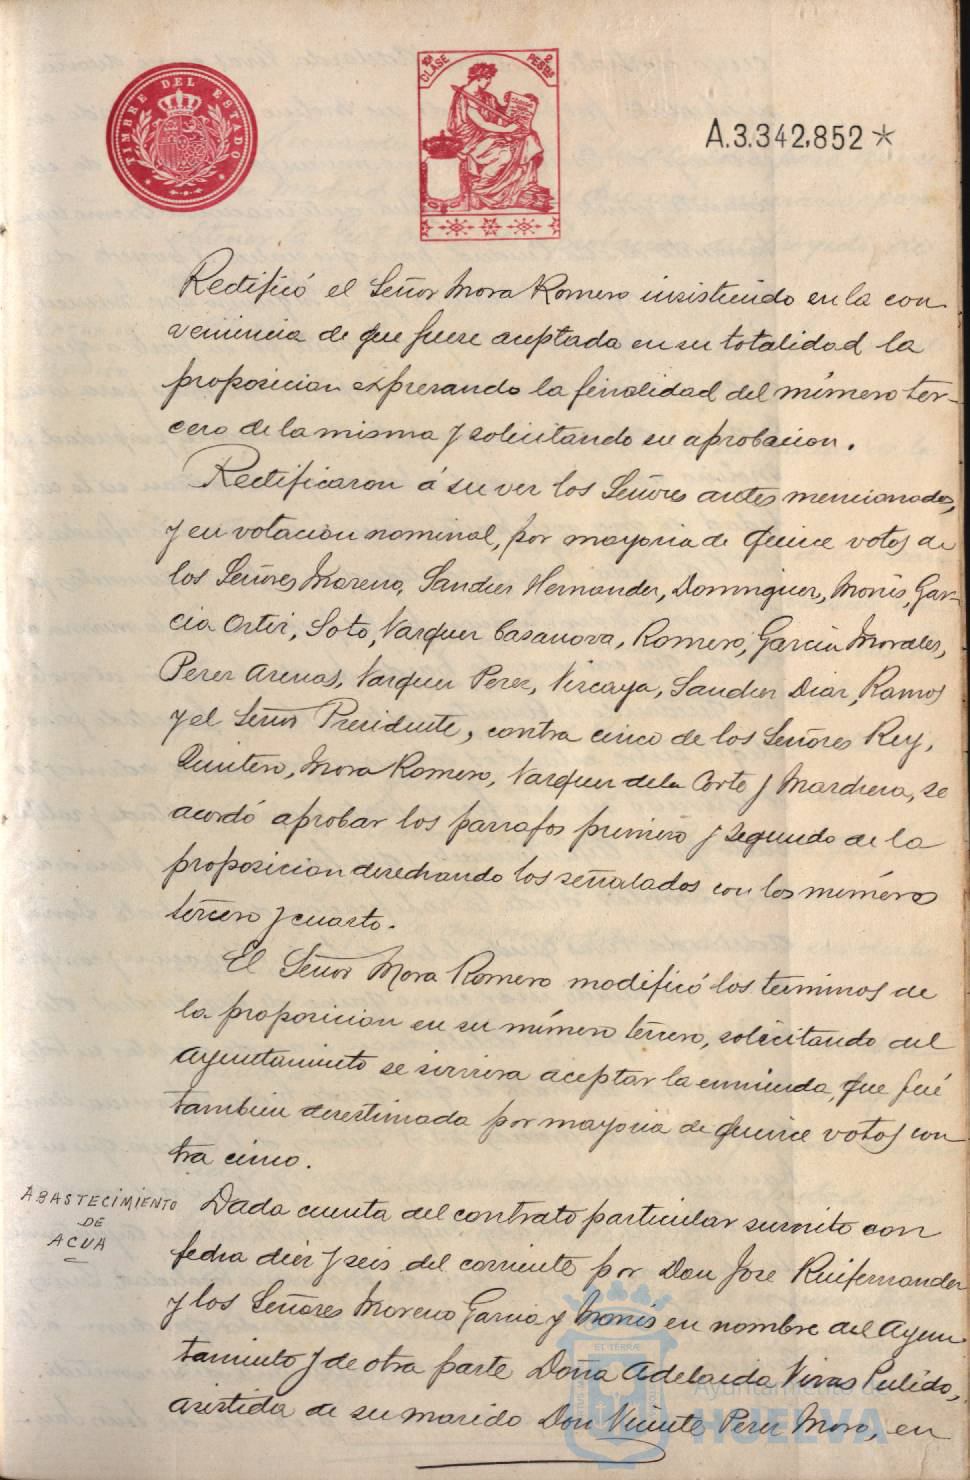 TIMBRE DEL ESTADO
10ª CLASE 2 PESETAS
A.3.342,852 *
Rectificó el Señor Mora Romero insistiendo en la con
veniencia de que fuese aceptada en su totalidad la
proposicion expresando la finalidad del número ter-
cero de la misma y solicitando su aprobacion.
Rectificaron á su vez los Señores antes mencionados,
y en votacion nominal, por mayoria de quince votos de
los Señores Moreno, Sanchez Hernandez, Dominguez, Monis, Gar-
cia Ortiz, Soto, Vazquez Casanova, Romero, Garcia Morales,
Perez Arenas, Vazquez Perez, Vizcaya, Sanchez Diaz, Ramos
y el Señor Presidente, contra cinco de los Señores Rey,
Quintero, Mora Romero, Vazquez de la Corte y Marchena, se
acordó aprobar los parrafos primero y segundo de la
proposicion desechando los señalados con los números
tercero y cuarto.
El Señor Mora Romero modificó los terminos de
la proposicion en su número tercero, solicitando del
Ayuntamiento se sirviera aceptar la enmienda, que fué
tambien desestimada por mayoria de quince votos con
tra cinco.
ABASTECIMIENTO
DE
AGUA
Dada cuenta del contrato particular suscrito con
fecha diez y seis del corriente por Don Jose Ruifernandez
y los Señores Moreno Garcia y Monis en nombre del Ayun
tamiento y de otra parte Doña Adelaida Vivas Pulido,
asistida de su marido Don Vicente Perez Moro, en
Ayuntamiento de
HUELVA